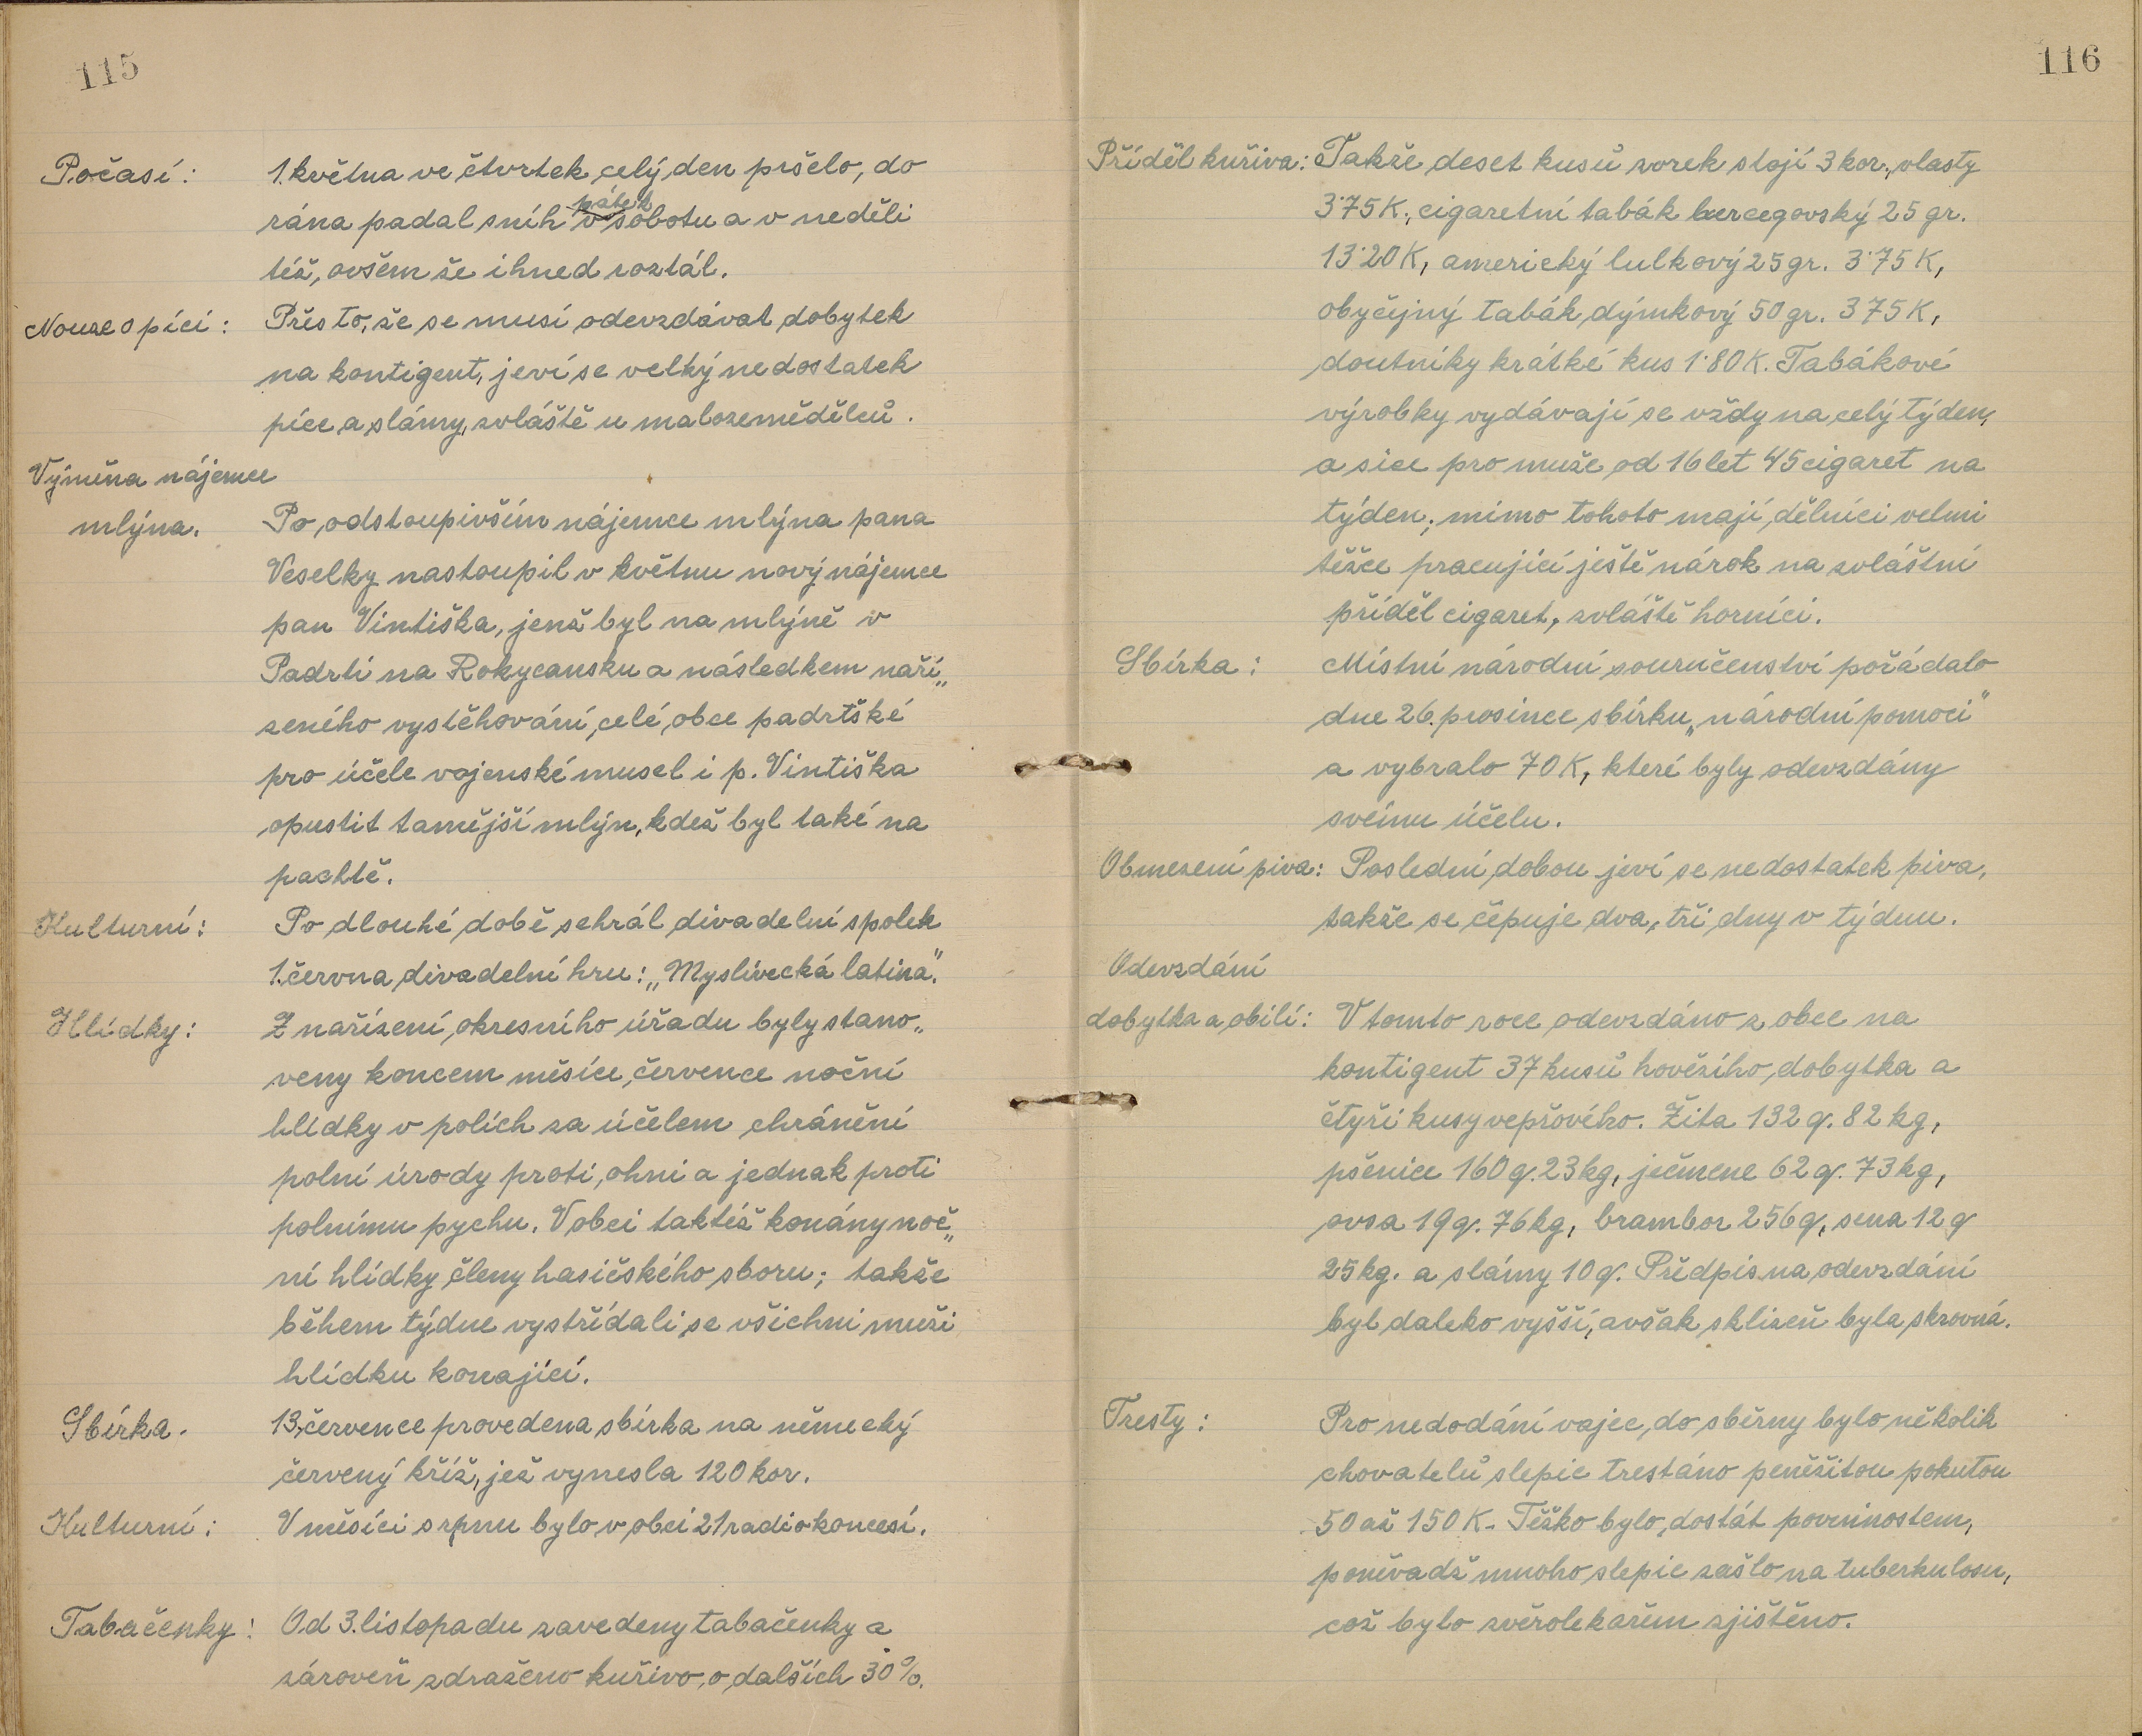 115
Počasí: 1. května ve čtvrtek celý den pršelo, do
pátek
rána padal sníh v sobotu a v neděli
též, ovšem že ihned roztál.
Nouze o píci: Přes to, že se musí odevzdávat dobytek
na kontigent, jeví se velký nedostatek
píce a slámy, zvláště u malozemědělců.
Výměna nájemce
mlýna. Po odstoupivším nájemce mlýna pana
Veselky nastoupil v květnu nový nájemce
pan Vintiška, jenž byl na mlýně v
Padrti na Rokycansku a následkem naří„
zeného vystěhování celé obce padrtské
pro účele vojenské musel i p. Vintiška
opustit tamější mlýn, kdež byl také na
pachtě.
Kulturní: Po dlouhé době sehrál divadelní spolek
1. června divadelní hru: „Myslivecká latina".
Hlídky: Z nařízení okresního úřadu byly stano„
veny koncem měsíce července noční
hlídky v polích za účelem chránění
polní úrody proti ohni a jednak proti
polnímu pychu. V obci taktéž konány noč„
ní hlídky členy hasičského sboru; takže
během týdne vystřídali se všichni muži
hlídku konající.
Sbírka. 13. července provedena sbírka na německý
červený kříž, jež vynesla 120 kor.
Kulturní: V měsíci srpnu bylo v obci 21 radiokoncesí.
Tabačenky: Od 3. listopadu zavedeny tabačenky a
zároveň zdraženo kuřivo o dalších 30%.
116
Příděl kuřiva: Takže deset kusů zorek stojí 3 kor., vlasty
3·75 K., cigaretní tabák hercegovský 25 gr.
13·20 K, americký lulkový 25 gr. 3·75 K,
obyčejný tabák dýmkový 50 gr. 375 K,
doutníky krátké kus 1·80 K. Tabákové
výrobky vydávají se vždy na celý týden,
a sice pro muže od 16 let 45 cigaret na
týden; mimo tohoto mají dělníci velmi
těžce pracující ještě nárok na zvláštní
příděl cigaret, zvláště horníci.
Sbírka: Místní národní souručenství pořádalo
dne 26. prosince sbírku „národní pomoci"
a vybralo 70 K, které byly odevzdány
svému účelu.
Obmezení piva: Poslední dobou jeví se nedostatek piva,
takže se čepuje dva, tři dny v týdnu.
Odevzdání
dobytka a obilí: V tomto roce odevzdáno z obce na
kontigent 37 kusů hovězího dobytka a
čtyři kusy vepřového. Žita 132 q. 82 kg,
pšenice 160 q. 23 kg, ječmene 62 q. 73 kg,
ovsa 19 q. 76 kg, brambor 256 q, sena 12 q
25 kg. a slámy 10 q. Předpis na odevzdání
byl daleko vyšší, avšak sklizeň byla skrovná.
Tresty: Pro nedodání vajec do sběrny bylo několik
chovatelů slepic trestáno peněžitou pokutou
50 až 150 K. Těžko bylo dostát povinnostem,
poněvadž mnoho slepic zašlo na tuberkulosu,
což bylo zvěrolekařem zjištěno.